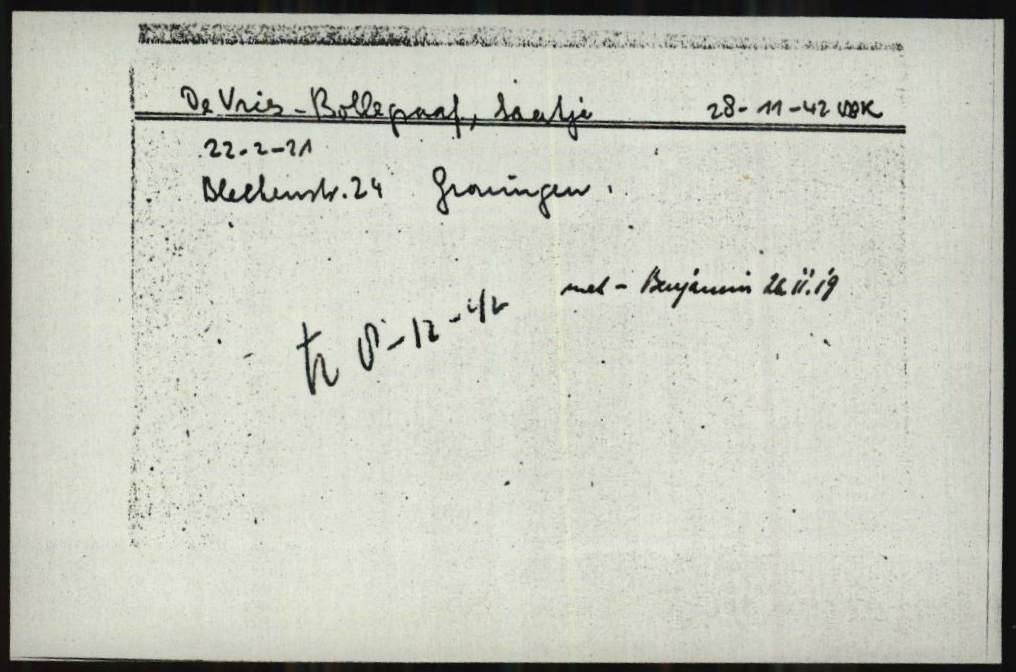 De Vries-Bollegraaf, Saartje 28-11-42
22-2-21
24 Groningen.
met - Benjamin 26.11.19
tr 8-12-42